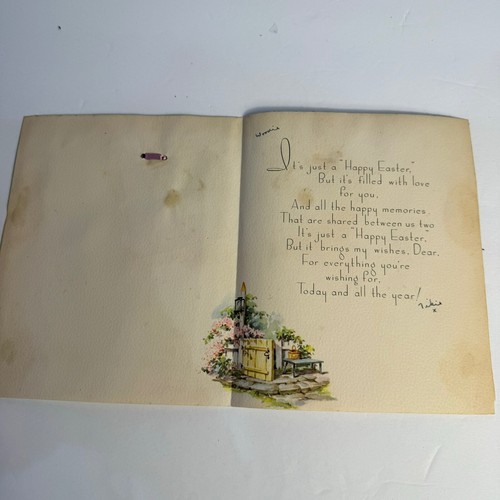 It's just a "Happy Easter,"
But it's filled with love
for you,
And all the happy memories
That are shared between us two
It's just a "Happy Easter,"
But it brings my wishes, Dear,
For everything you're
wishing for,
Today and all the year!
x